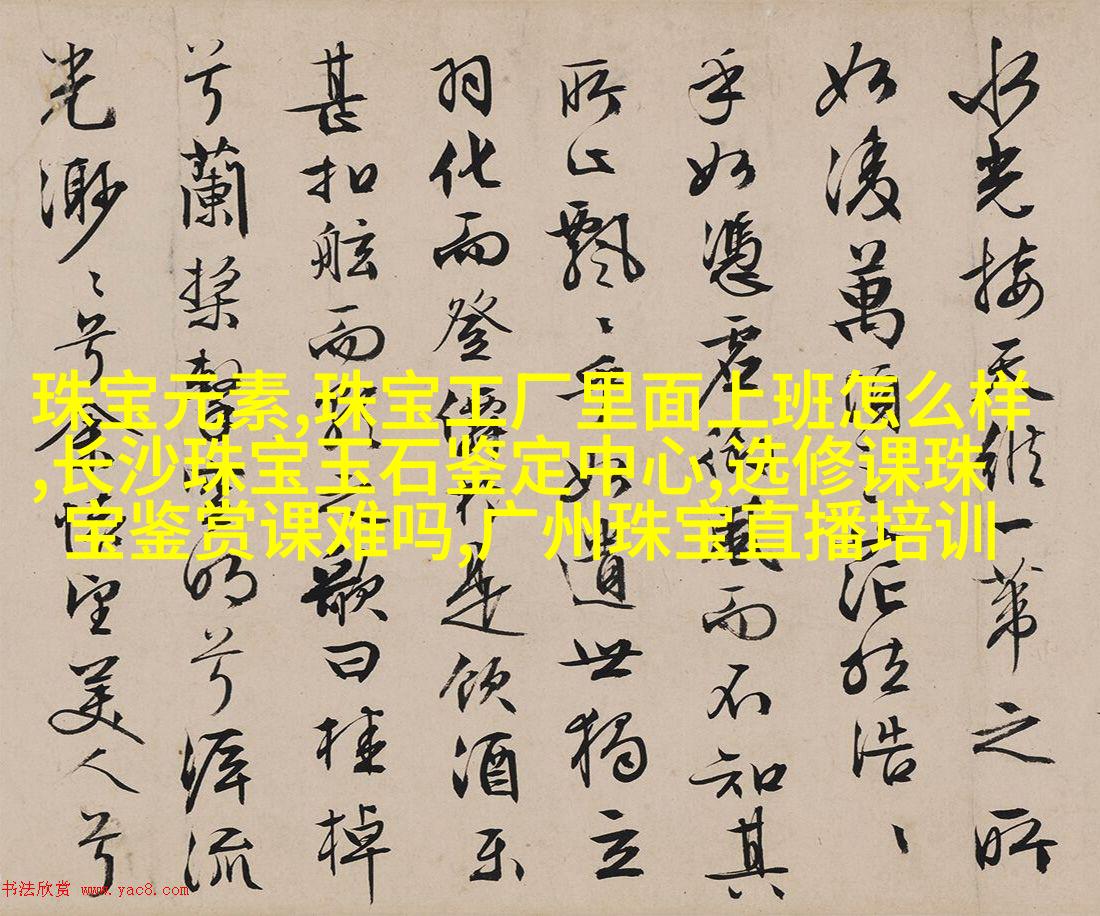 水光接天縱一葦之所
如凌萬頃之茫然浩〻
乎如憑虛御風而不知其
所止飄〻乎如遺世獨立
羽化而登僊於是飲酒樂
甚扣舷而歌之歌曰桂棹
兮蘭槳擊空明兮泝流
光渺〻兮余懷望美人兮
珠宝元素,珠宝工厂里面上班怎么样
,长沙珠宝玉石鉴定中心,选修课珠
宝鉴赏课难吗,广州珠宝直播培训
书法欣赏 www.yac8.com